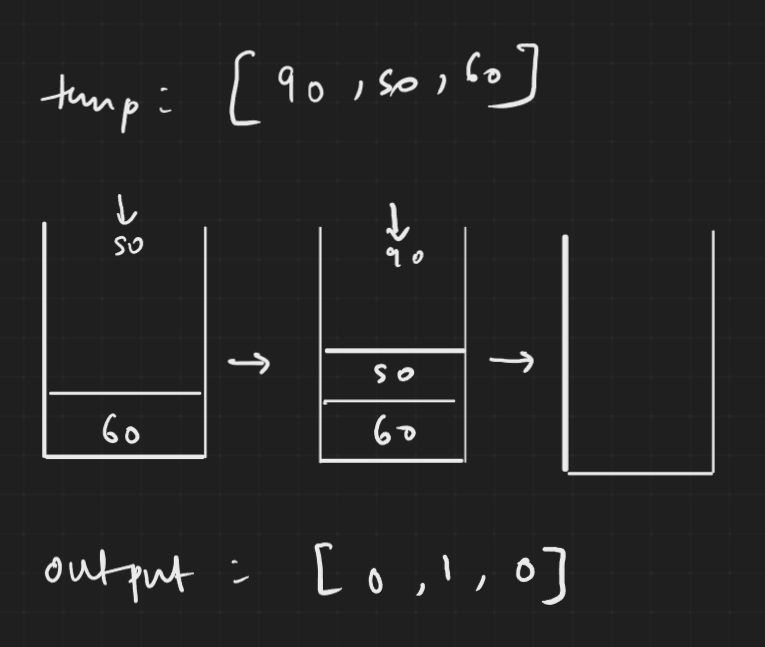 tmp = [90, 50, 60]
↓ ↓
50 90
→ →
50
60 60
output = [0, 1, 0]